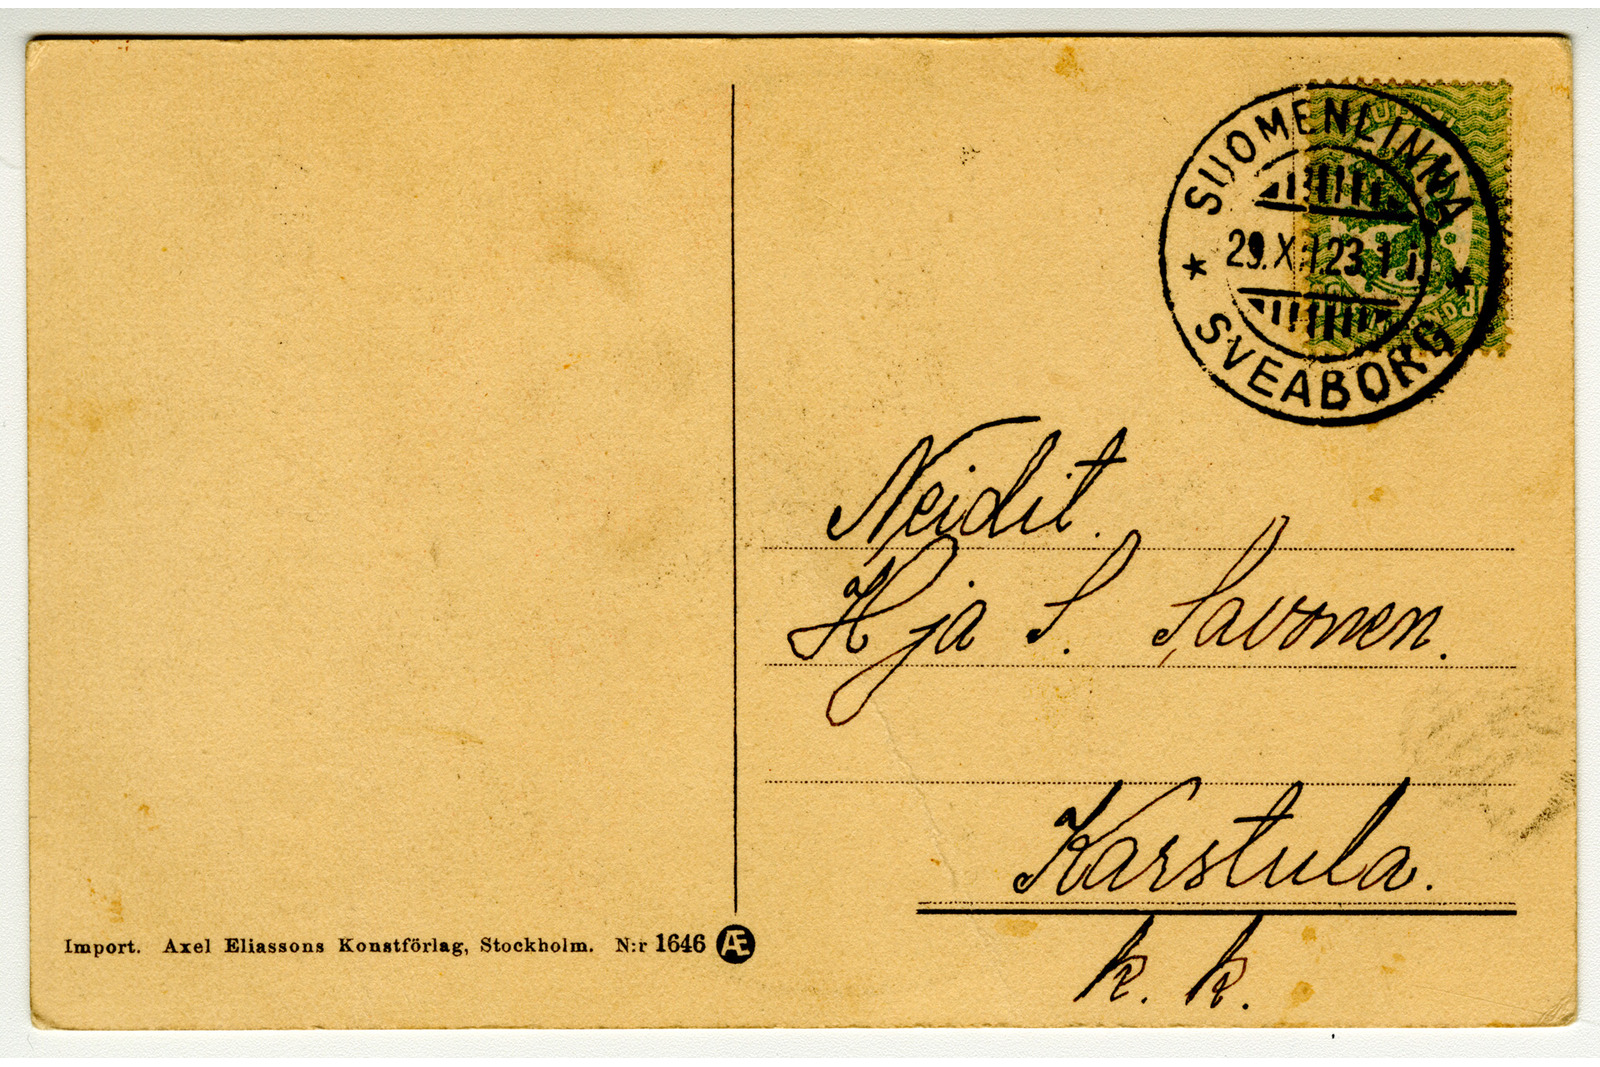 SUOMENLINNA
SVEABORG
Neidit.
Hja S. Savonen.
Karstula.
k. k.
Import. Axel Eliassons Konstförlag, Stockholm. N:r 1646 Æ